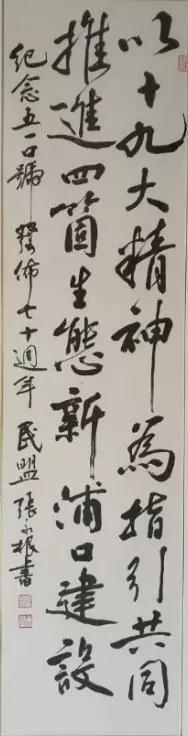 以十九大精神為指引共同
推進四箇生態新浦口建設
紀念五一口號發佈七十週年 民盟 張小根書